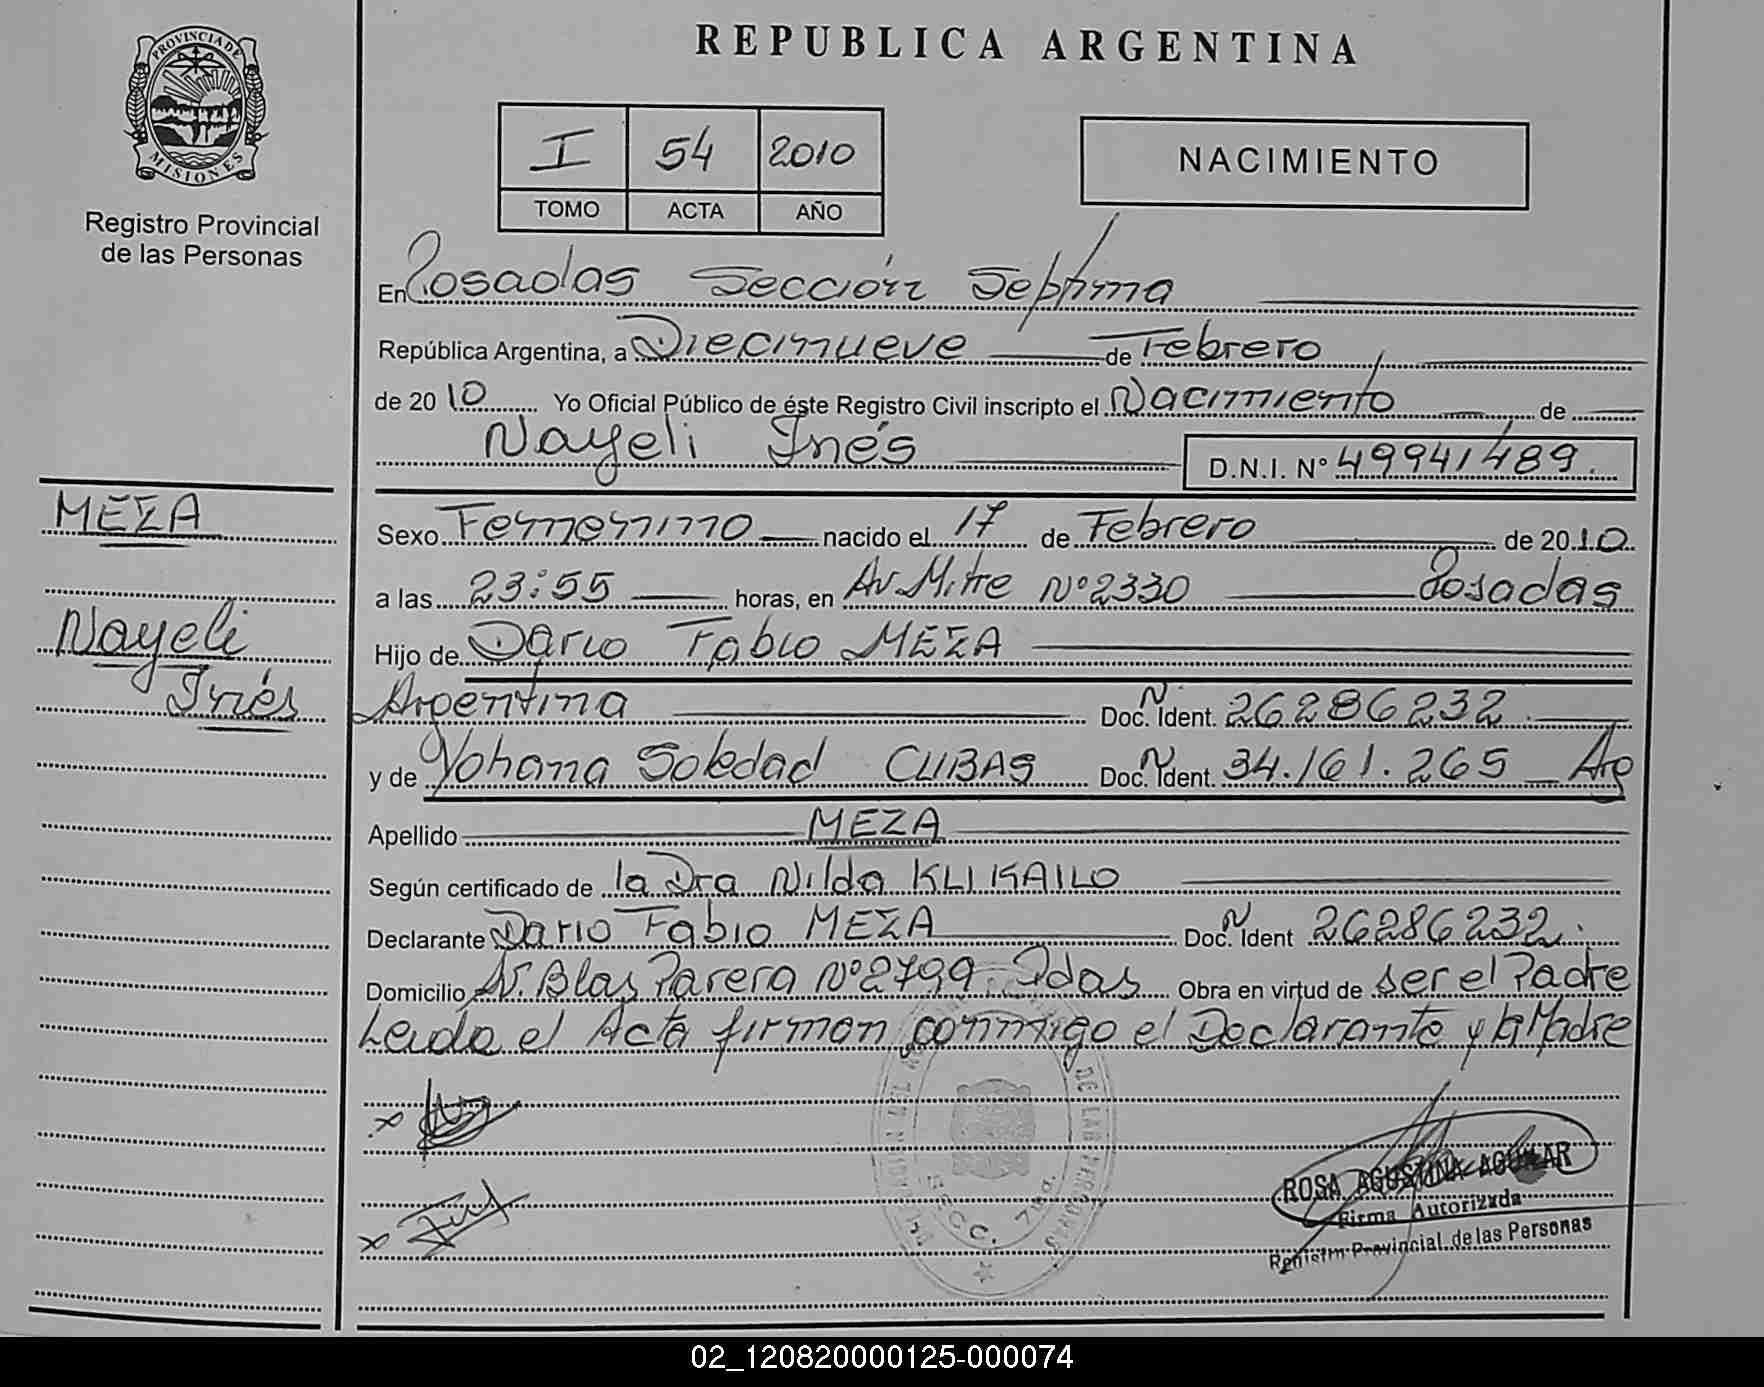 REPUBLICA ARGENTINA
PROVINCIA DE
MISIONES
Registro Provincial
de las Personas
I 54 2010
TOMO ACTA AÑO
NACIMIENTO
En Posadas Sección Septima
República Argentina, a Diecinueve de Febrero
de 2010 Yo Oficial Público de éste Registro Civil inscripto el Nacimiento de
Nayeli Inés D.N.I. Nº 49941489.
MEZA
Nayeli
Inés
Sexo Femenino nacido el 17 de Febrero de 2010
a las 23:55 horas, en Av Mitre Nº 2330 Posadas
Hijo de Dario Fabio MEZA
Argentina Doc. N Ident. 26286232
y de Yohana Soledad CUBAS Doc. N Ident. 34.161.265 Arg
Apellido MEZA
Según certificado de la Dra Nilda KLIKAILO
Declarante Dario Fabio MEZA Doc. N Ident 26286232.
Domicilio Av. Blas Parera Nº 2799 Pdas Obra en virtud de ser el Padre
Leida el Acta firman conmigo el Declarante y la Madre
x
x
DE LAS PERSONAS
SECC. 7ma.
ROSA AGUSTINA AGUILAR
Firma Autorizada
Registro Provincial de las Personas
02_120820000125-000074